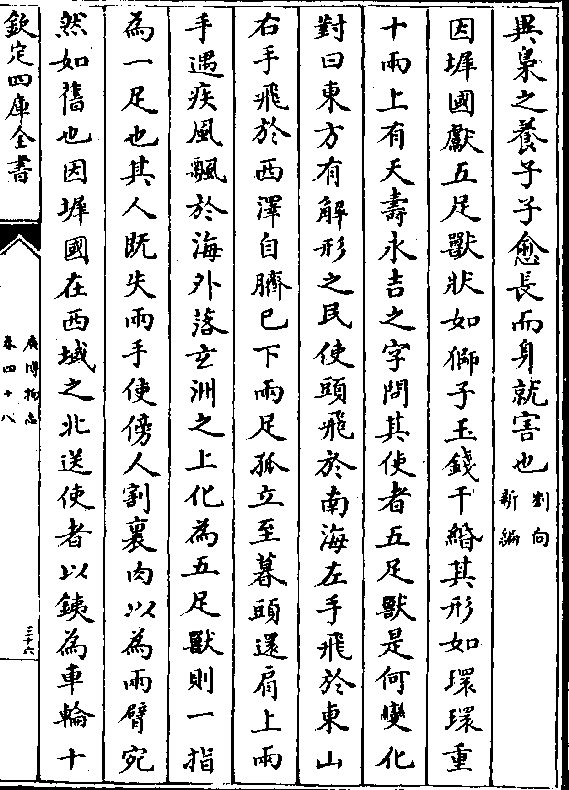 異梟之養子子愈長而身就害也劉向新編
因墀國獻五足獸狀如獅子玉錢千緡其形如環環重
十兩上有天壽永吉之字問其使者五足獸是何變化
對曰東方有解形之民使頭飛於南海左手飛於東山
右手飛於西澤自臍已下兩足孤立至暮頭還肩上兩
手遇疾風飄於海外落玄洲之上化為五足獸則一指
為一足也其人既失兩手使傍人割裏肉以為兩臂宛
然如舊也因墀國在西域之北送使者以鐵為車輪十
欽定四庫全書
廣博物志
卷四十八
三十六